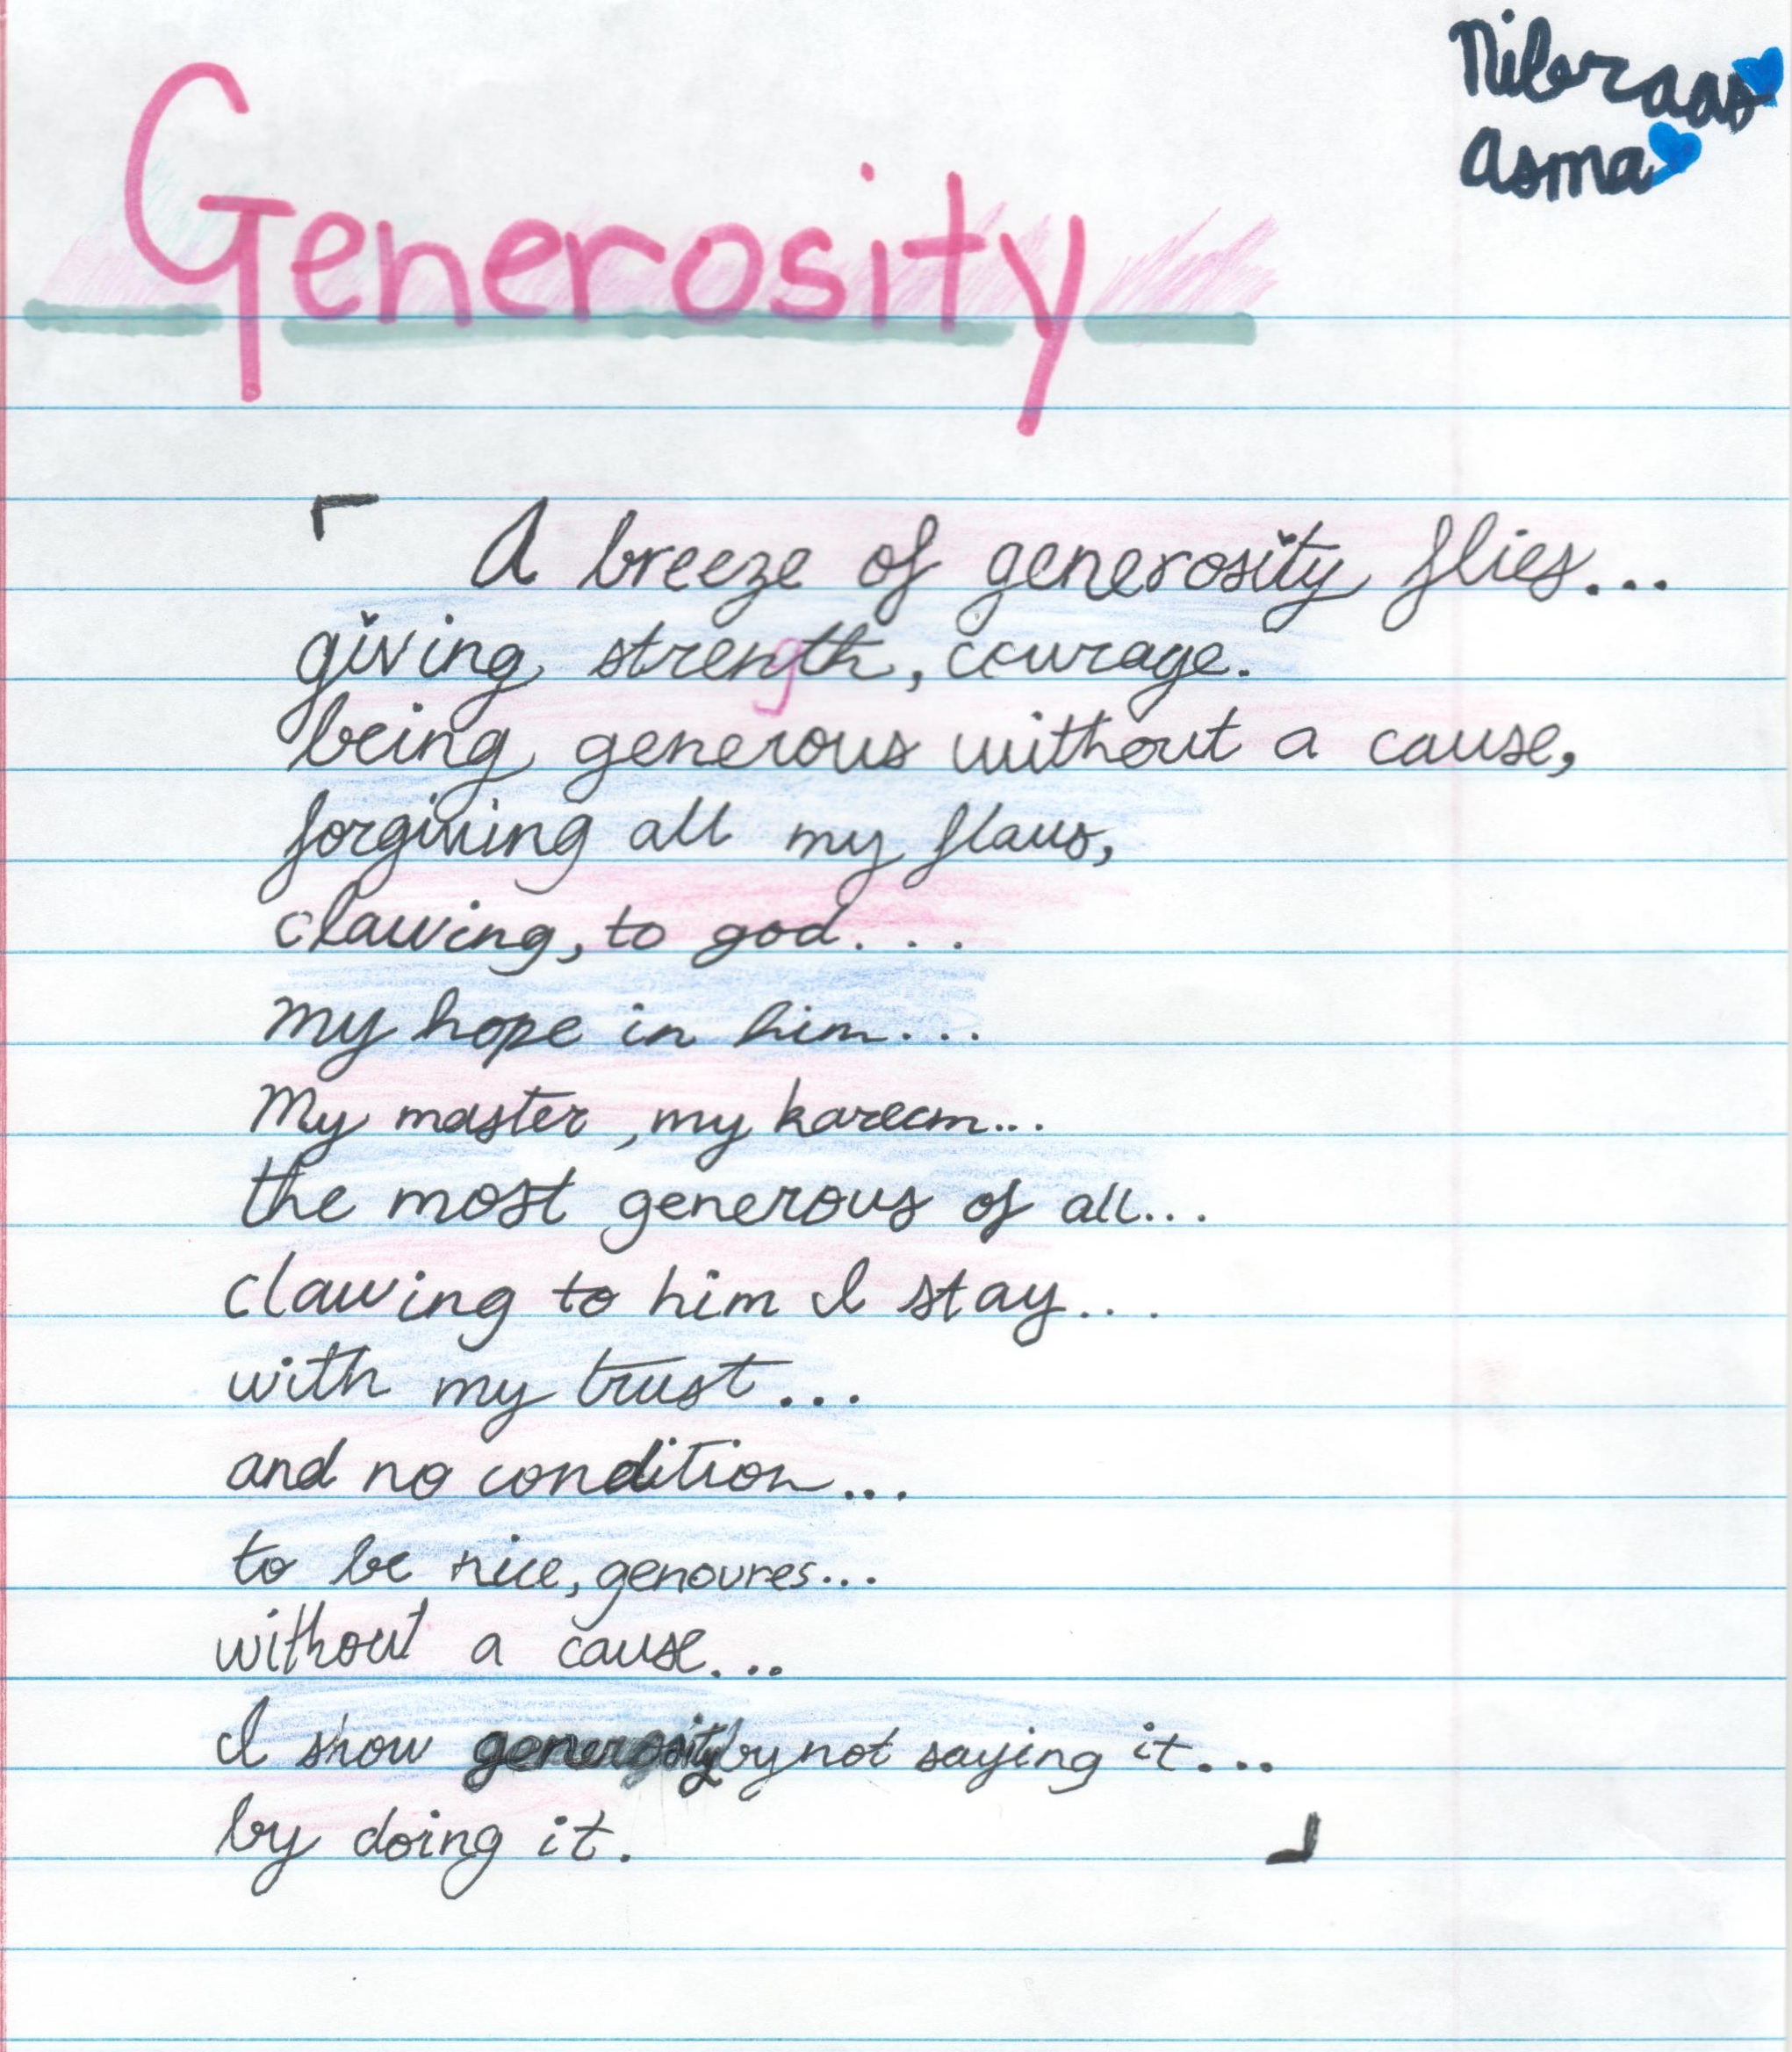 Nibraas
Asma
Generosity
「 A breeze of generosity flies...
giving strength, courage.
being generous without a cause,
forgiving all my flaws,
clawing, to god....
my hope in him....
My master, my kareem...
the most generous of all...
clawing to him I stay....
with my trust...
and no condition...
to be nice, genoures...
without a cause....
I show generosity by not saying it....
by doing it. 」